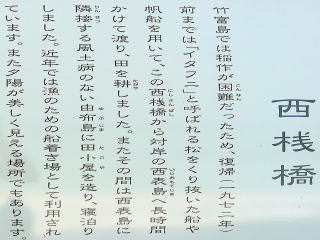 西桟橋
竹富島では稲作が困難だったため、復帰(一九七二年)
前までは「イタフニ」と呼ばれる松をくり抜いた船や
帆船を用いて、この西桟橋から対岸の西表島へ長時間
かけて渡り、田を耕しました。またその間は西表島に
隣接する風土病のない由布島に田小屋を造り、寝泊り
しました。近年では漁のための船着き場として利用され
ています。また夕陽が美しく見える場所でもあります。